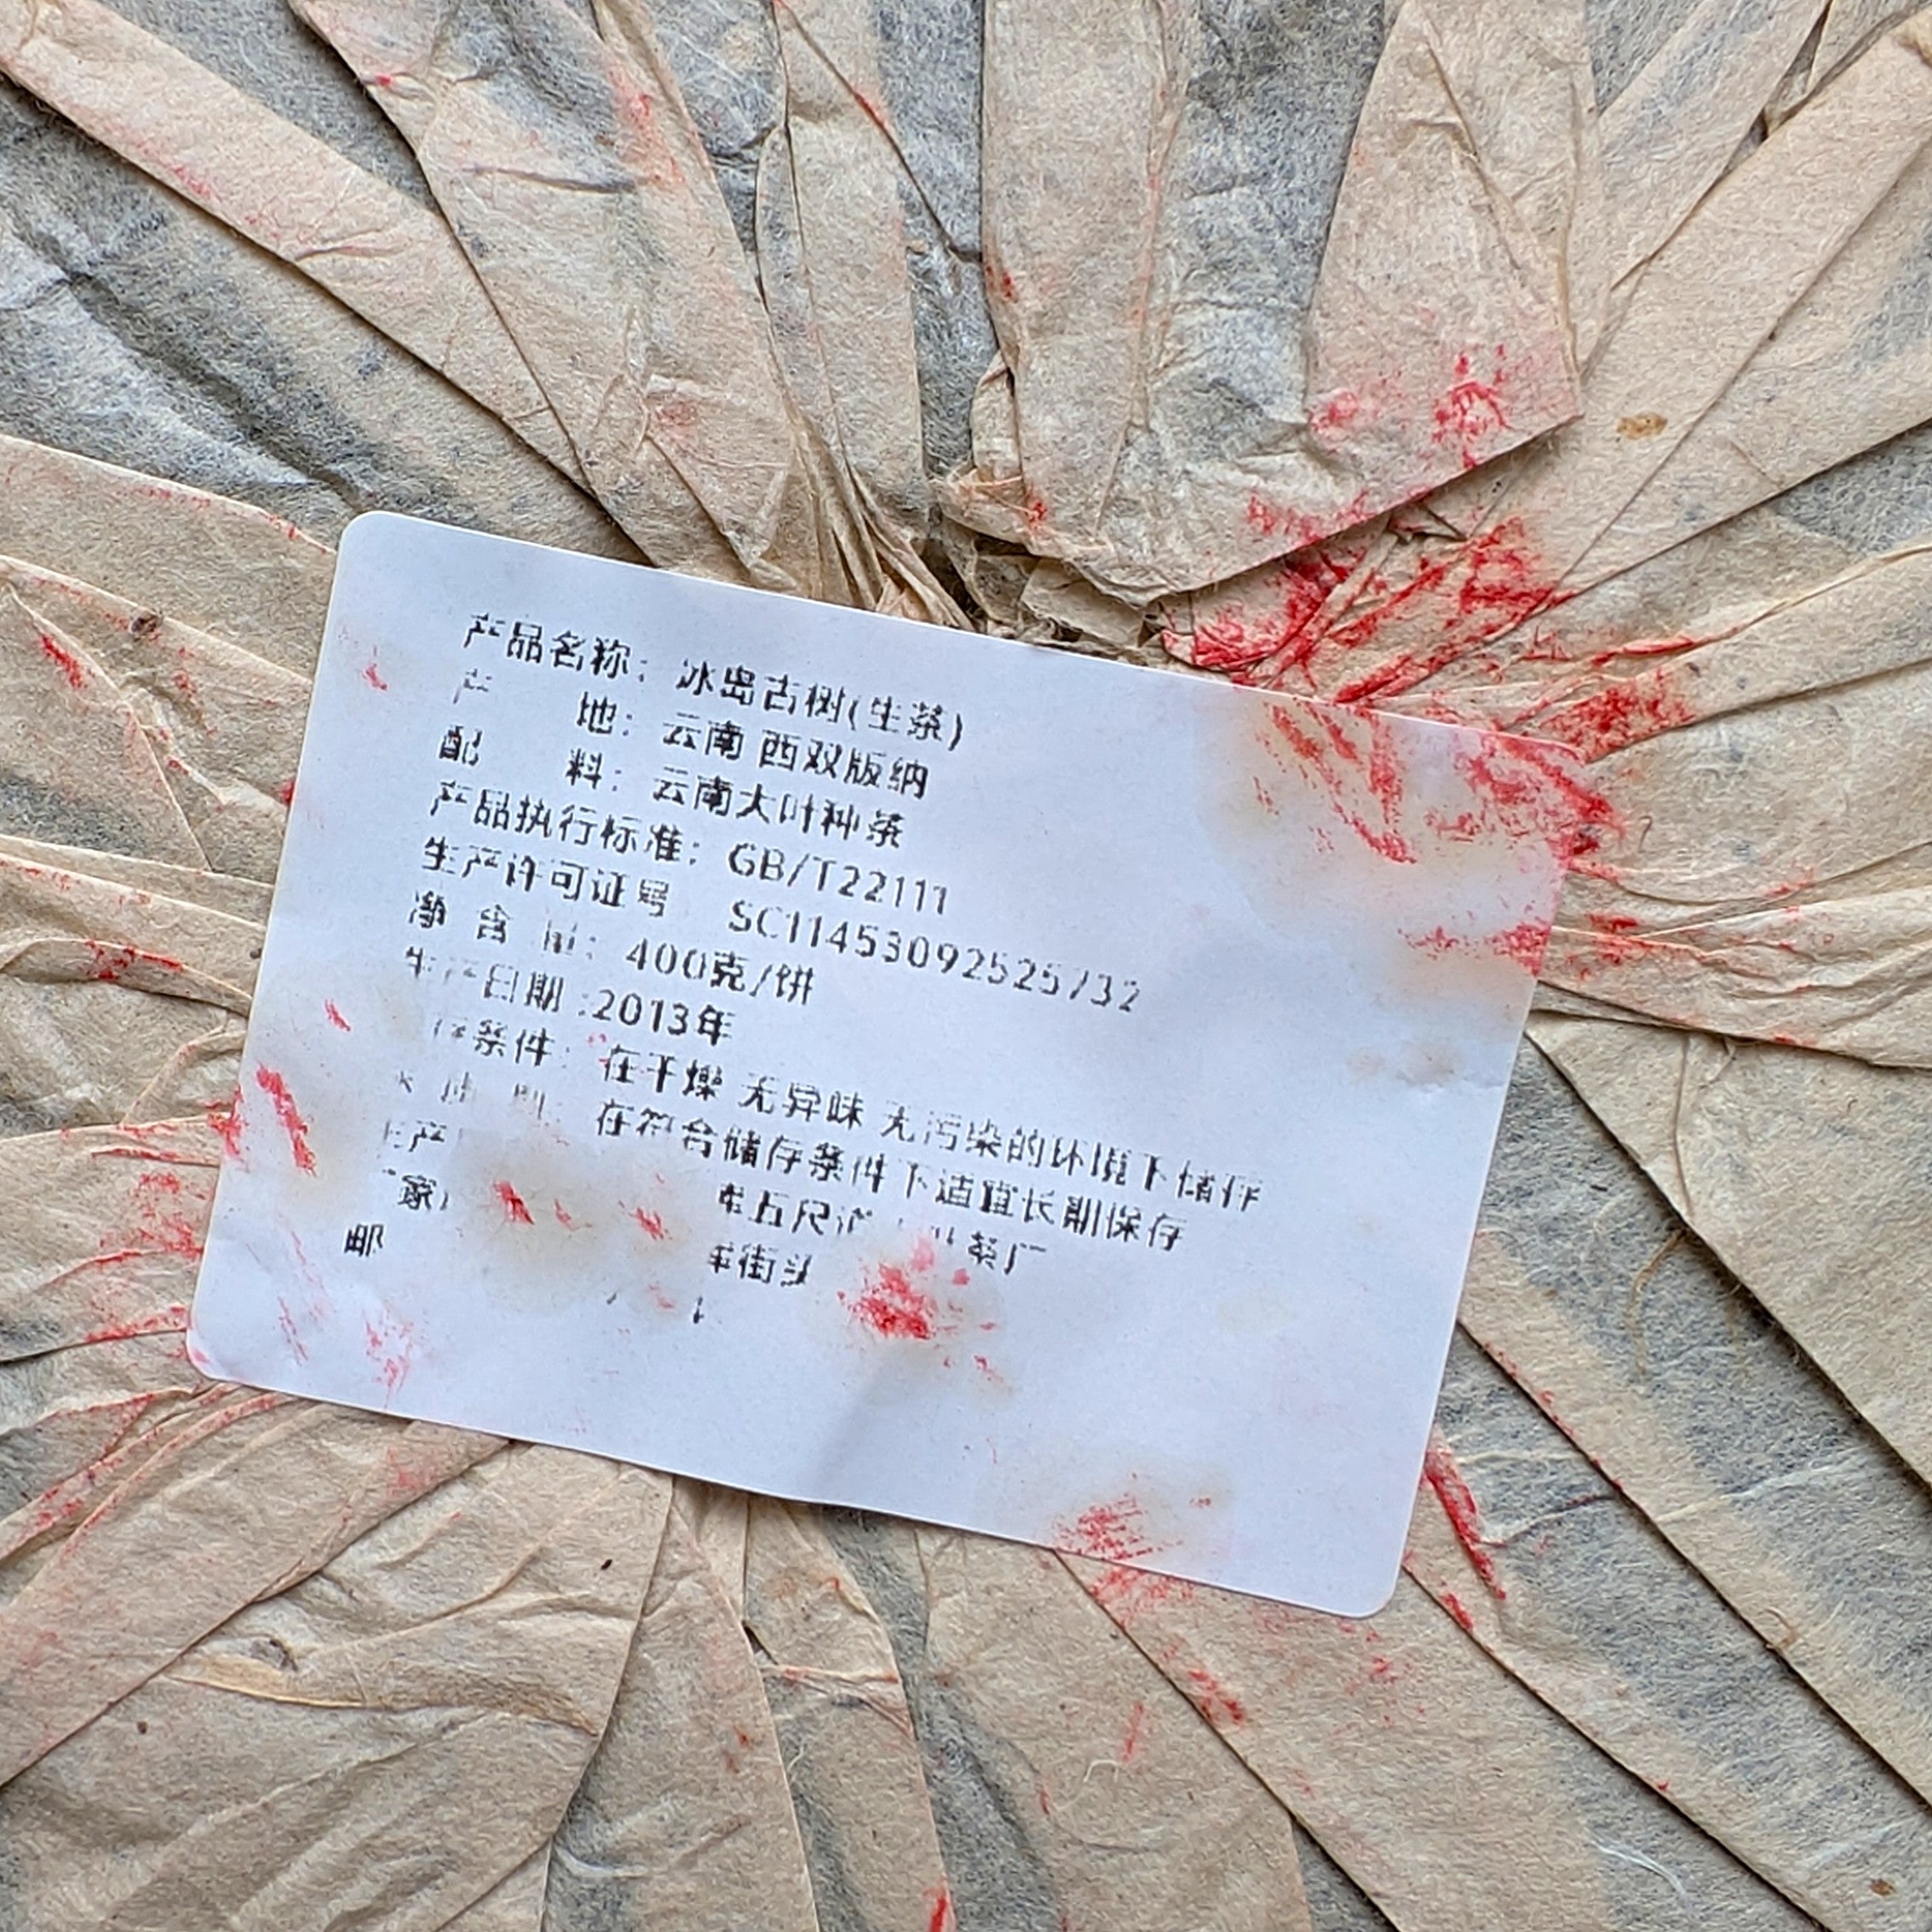 产品名称：冰岛古树(生茶)
产 地：云南 西双版纳
配 料：云南大叶种茶
产品执行标准：GB/T22111
生产许可证号 SC11453092525732
净 含 量：400克/饼
生产日期:2013年
存条件：在干燥 无异味 无污染的环境下储存
在符合储存条件下适宜长期保存
产 五尺道 茶厂
家 街头
邮